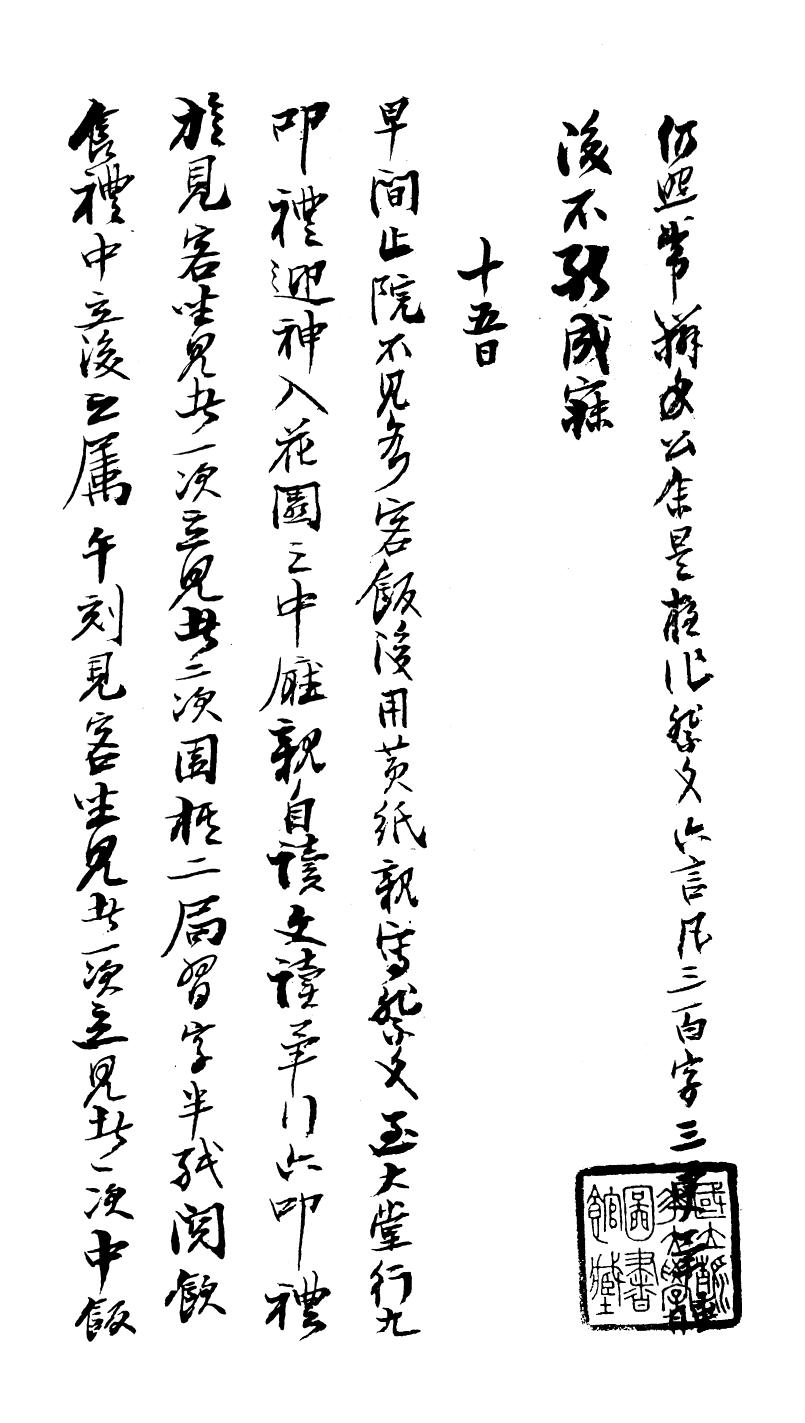 仍照常辦公余是夜作祭文六言凡三百字三
後不能成寐
十五日
早間止院不見各客飯後用黃紙親寫祭文至大堂行九
叩禮迎神入花園之中廳親自讀文讀畢行六叩禮
旋見客坐見者一次立見者二次圍棋二局習字半紙閱飲
食禮中立後之屬午刻見客坐見者一次立見者一次中飯
國立
圖書
館藏